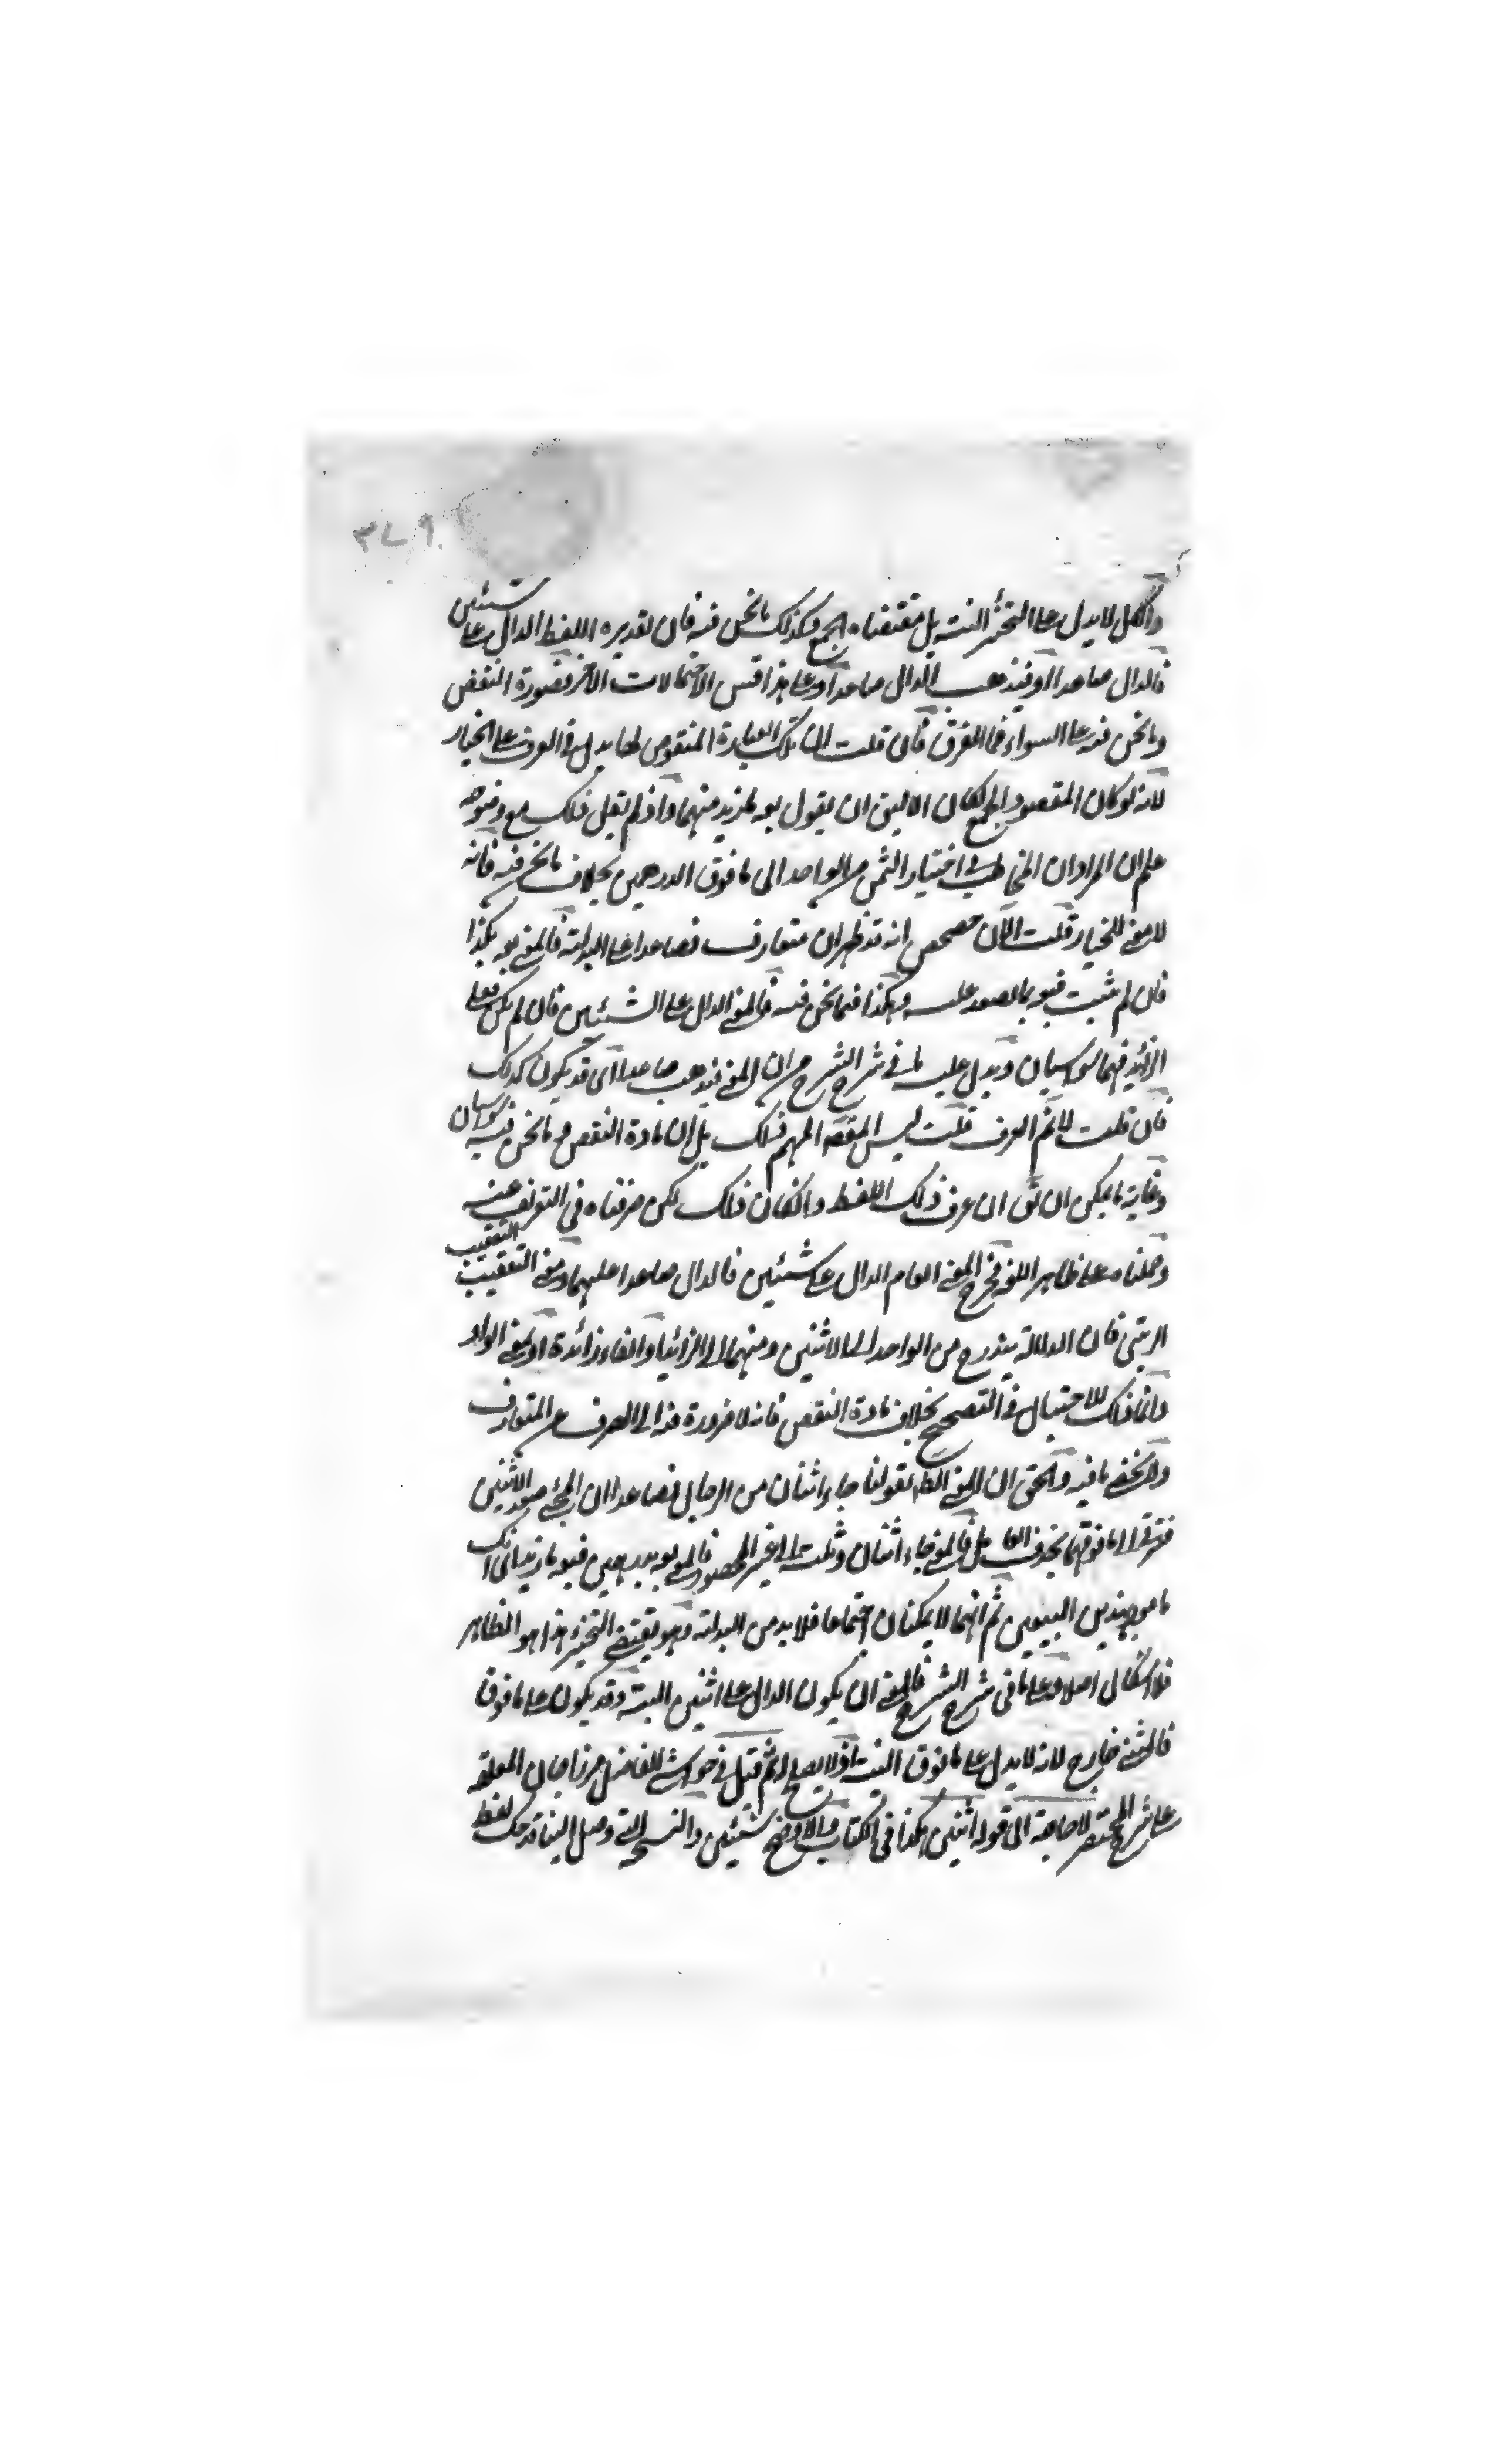 ٣٧٩
والكل لا يدل على التخيير البتة بل مقتضاه الجمع وكذلك ما نحن فيه فان تقديره اللفظ الدال على شيئين
فالدال صاعدا او فيذهب الدال صاعدا وعلى هذا قس الاحتمالات الاخر فصورة النقض
وما نحن فيه على السواء فما الفرق فان قلت ان تلك العبارة المنقوص بها يدل في العرف على الخيار
لانه لو كان المقصود الجمع لكان الاليق ان يقول بعه بمزيد منهما واذ لم يقل ذلك مع وضوحه
علم ان المراد ان المخاطب في اختيار الثمن من الواحد الى ما فوق الدرهمين بخلاف ما نحن فيه فانه
لا معنى للخيار قلت الآن حصحص انه قد ظهر ان متعارف فصاعدا على البدلية فالمعنى بعه بكذا
فان لم يثبت فبعه بما يصعد عليه وهكذا فيما نحن فيه فالمعنى الدال على الشيئين فان لم يكن فعلى
الزائد فهما سواسيان ويدل عليه ما في شرح الشرح من ان المعنى فيذهب صاعدا اي قد يكون كذلك
فان قلت لا نم العرف قلت ليس المقصد المهم ذلك بل ان مادة النقض وما نحن فيه سواسيان
وغاية ما يمكن ان يق ان عرف ذلك اللفظ وان كان ذلك لكن صرفناه في التعريف عنه
وحملناه على ظاهر اللغة فخرج المعنى العام الدال على شيئين فالدال صاعدا عليهما ومعنى التعقيب التعقيب
الرتبي فان الدلالة يتدرج من الواحد الى الاثنين ومنهما الى الزائد او الفاء زائدة او بمعنى الواو
وانما ذلك للاحتيال في التصحيح بخلاف مادة النقض فانه لا ضرورة فيه الى الصرف عن المتعارف
ولا يخفى ما فيه والحق ان المعنى الظ لقولنا جاء اثنان من الرجال فصاعدا ان المجيء صعد الاثنين
فترقى الى ما فوقهما بحذف الفاعل فالمعنى جاء اثنان وثلث الى غير المحصور فالمعنى بعه بدرهمين فبعه بازيد اي انك
مامور بهذين البيعين ثم انهما لا يمكنان اجتماعا فلا بد من البدلية وهو يقتضي التخيير هذا هو الظاهر
فلا اشكال اصلا وعلى ما في شرح الشرح فالمعنى ان يكون الدال على اثنين البتة وقد يكون على ما فوق
فالمثنى خارج لانه لا يدل على ما فوق البتة اذ لا يصلح له ثم قيل في حواشي للفاضل ميرزا جان المعلقة
على شرح المختصر لا حاجة الى قوله اثنين هكذا في الكتاب والاوضح شيئين والنسخة التي وصل الينا قد حك لفظ